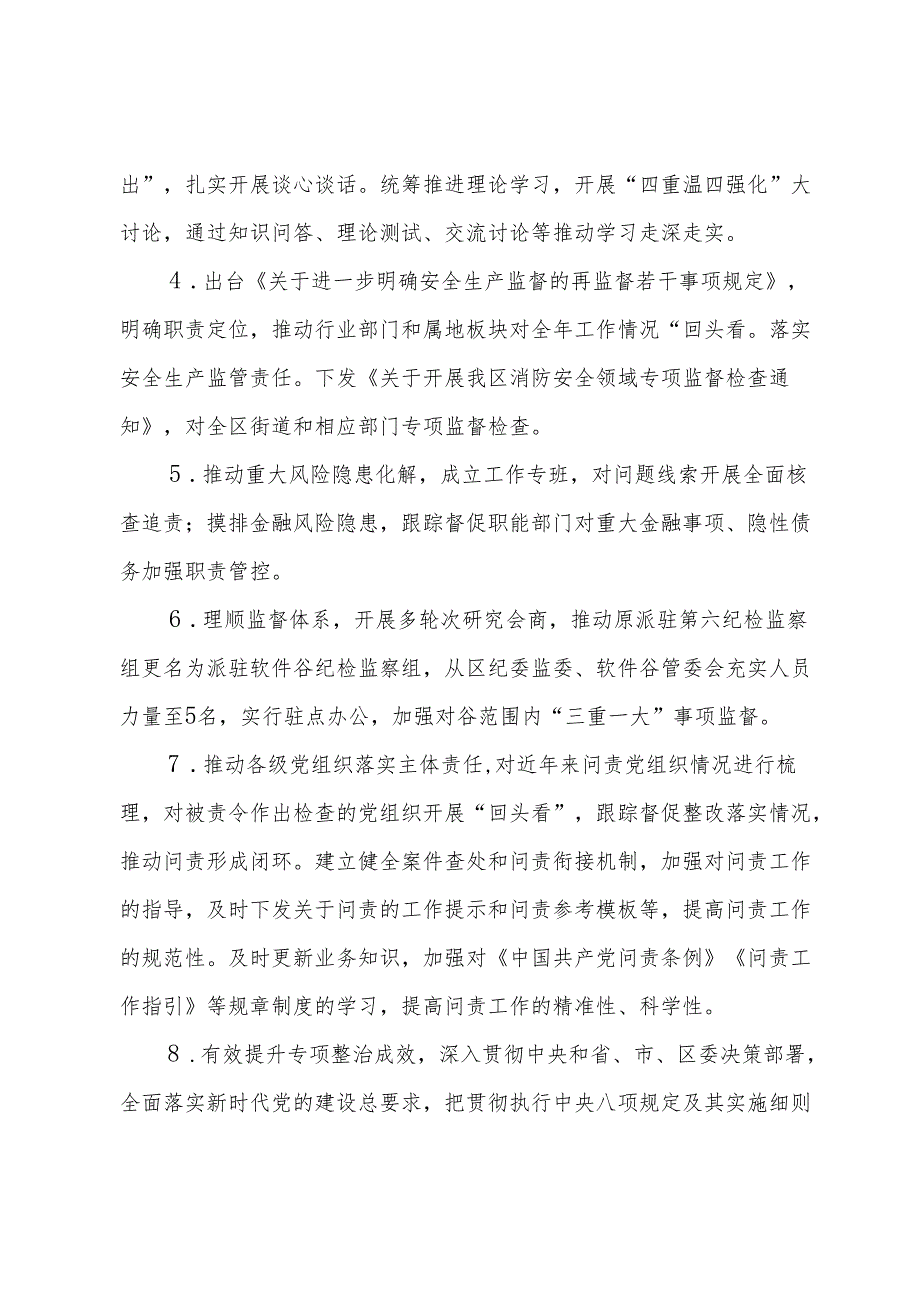 出”，扎实开展谈心谈话。统筹推进理论学习，开展“四重温四强化”大
讨论，通过知识问答、理论测试、交流讨论等推动学习走深走实。
４.出台《关于进一步明确安全生产监督的再监督若干事项规定》，
明确职责定位，推动行业部门和属地板块对全年工作情况“回头看。落实
安全生产监管责任。下发《关于开展我区消防安全领域专项监督检查通
知》，对全区街道和相应部门专项监督检查。
５.推动重大风险隐患化解，成立工作专班，对问题线索开展全面核
查追责；摸排金融风险隐患，跟踪督促职能部门对重大金融事项、隐性债
务加强职责管控。
６.理顺监督体系，开展多轮次研究会商，推动原派驻第六纪检监察
组更名为派驻软件谷纪检监察组，从区纪委监委、软件谷管委会充实人员
力量至5名，实行驻点办公，加强对谷范围内“三重一大”事项监督。
７.推动各级党组织落实主体责任,对近年来问责党组织情况进行梳
理，对被责令作出检查的党组织开展“回头看”，跟踪督促整改落实情况，
推动问责形成闭环。建立健全案件查处和问责衔接机制，加强对问责工作
的指导，及时下发关于问责的工作提示和问责参考模板等，提高问责工作
的规范性。及时更新业务知识，加强对《中国共产党问责条例》《问责工
作指引》等规章制度的学习，提高问责工作的精准性、科学性。
８.有效提升专项整治成效，深入贯彻中央和省、市、区委决策部署，
全面落实新时代党的建设总要求，把贯彻执行中央八项规定及其实施细则